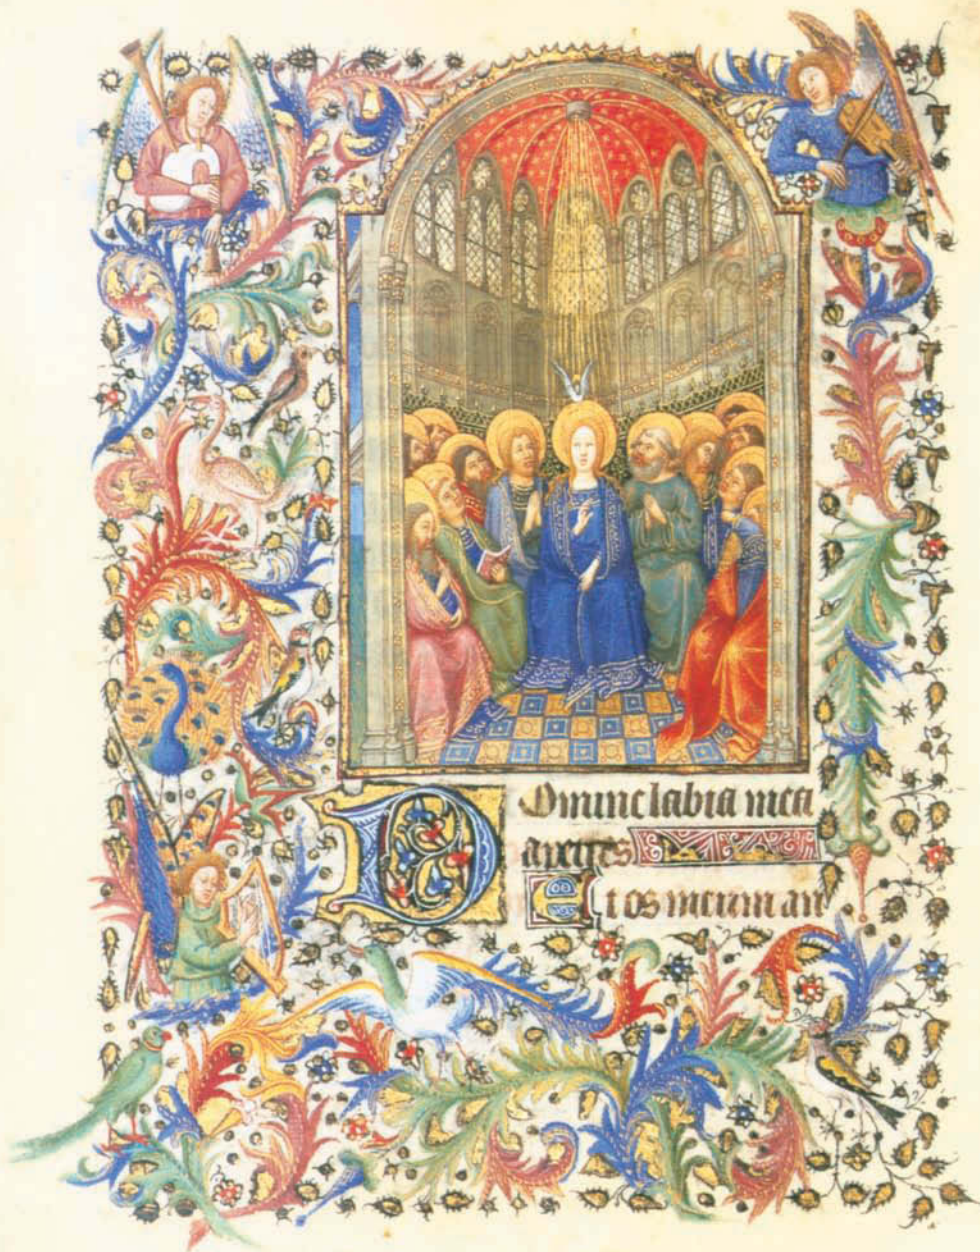 Domine labia mea
aperies
Et os meum an